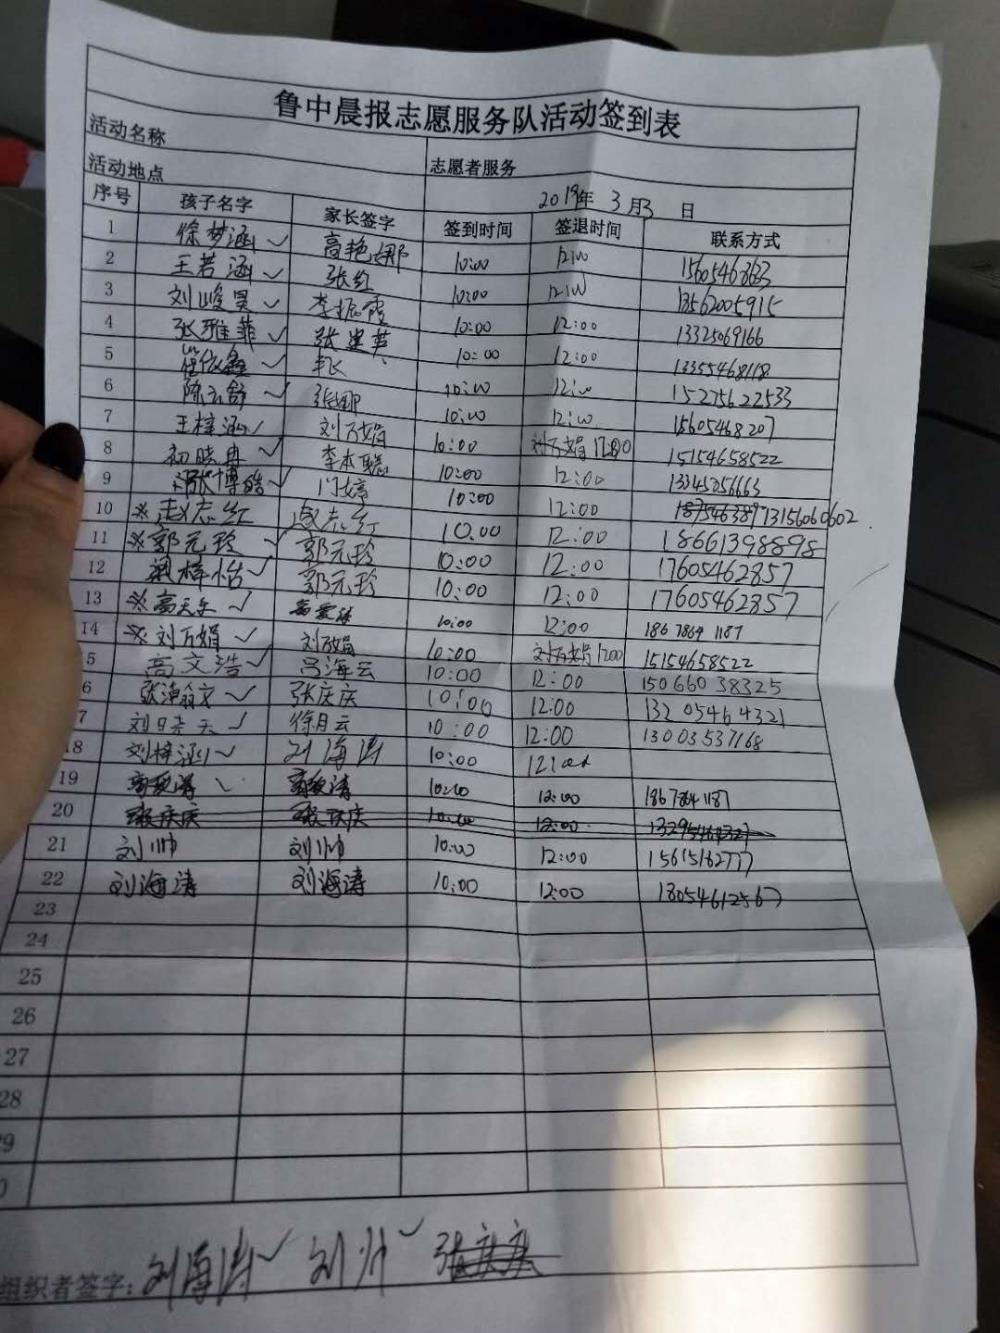 鲁中晨报志愿服务队活动签到表
活动名称
活动地点 志愿者服务
2019年 3月3 日
序号 孩子名字 家长签字 签到时间 签退时间 联系方式
1 徐梦涵 ✓ 高艳娜 10:00 12:00
2 王若涵 ✓ 张红 10:00 12:00 13562005915
3 刘峻昊 ✓ 李振霞 10:00 12:00 13325069166
4 张雅菲 ✓ 张建英 10:00 12:00 13355468118
5 10:00 12:00 15275622533
6 陈云舒 ✓ 张娜 10:00 12:00 15605468207
7 王梓涵 ✓ 刘万娟 10:00 刘万娟 12:00 15154658522
8 初晓冉 ✓ 李本聪 10:00 12:00
9 张博皓 ✓ 门婷 10:00 12:00 13156060602
10 ※赵志红 赵志红 10:00 12:00 18661398898
11 ※郭元珍 ✓ 郭元珍 10:00 12:00 17605462857
12 梓怡 ✓ 郭元珍 10:00 12:00 17605462857
13 ※高天乐 ✓ 10:00 12:00 186 7864 1187
14 ※刘万娟 ✓ 刘万娟 10:00 刘万娟 1200 15154658522
5 高文浩 ✓ 吕海云 10:00 12:00 15066038325
6 ✓ 张庆庆 10:00 12:00 13205464321
7 刘昊天 ✓ 徐月云 10:00 12:00 13003537168
18 刘梓涵 ✓ 刘海涛 10:00
19 ✓ 10:00 12:00 18678641187
20 张庆庆 张庆庆 10:00 12:00
21 刘帅 刘帅 10:00 12:00 15615162777
22 刘海涛 刘海涛 10:00 12:00 18054612567
23
24
25
26
27
28
9
0
组织者签字: 刘海涛 ✓ 刘帅 ✓ 张庆庆